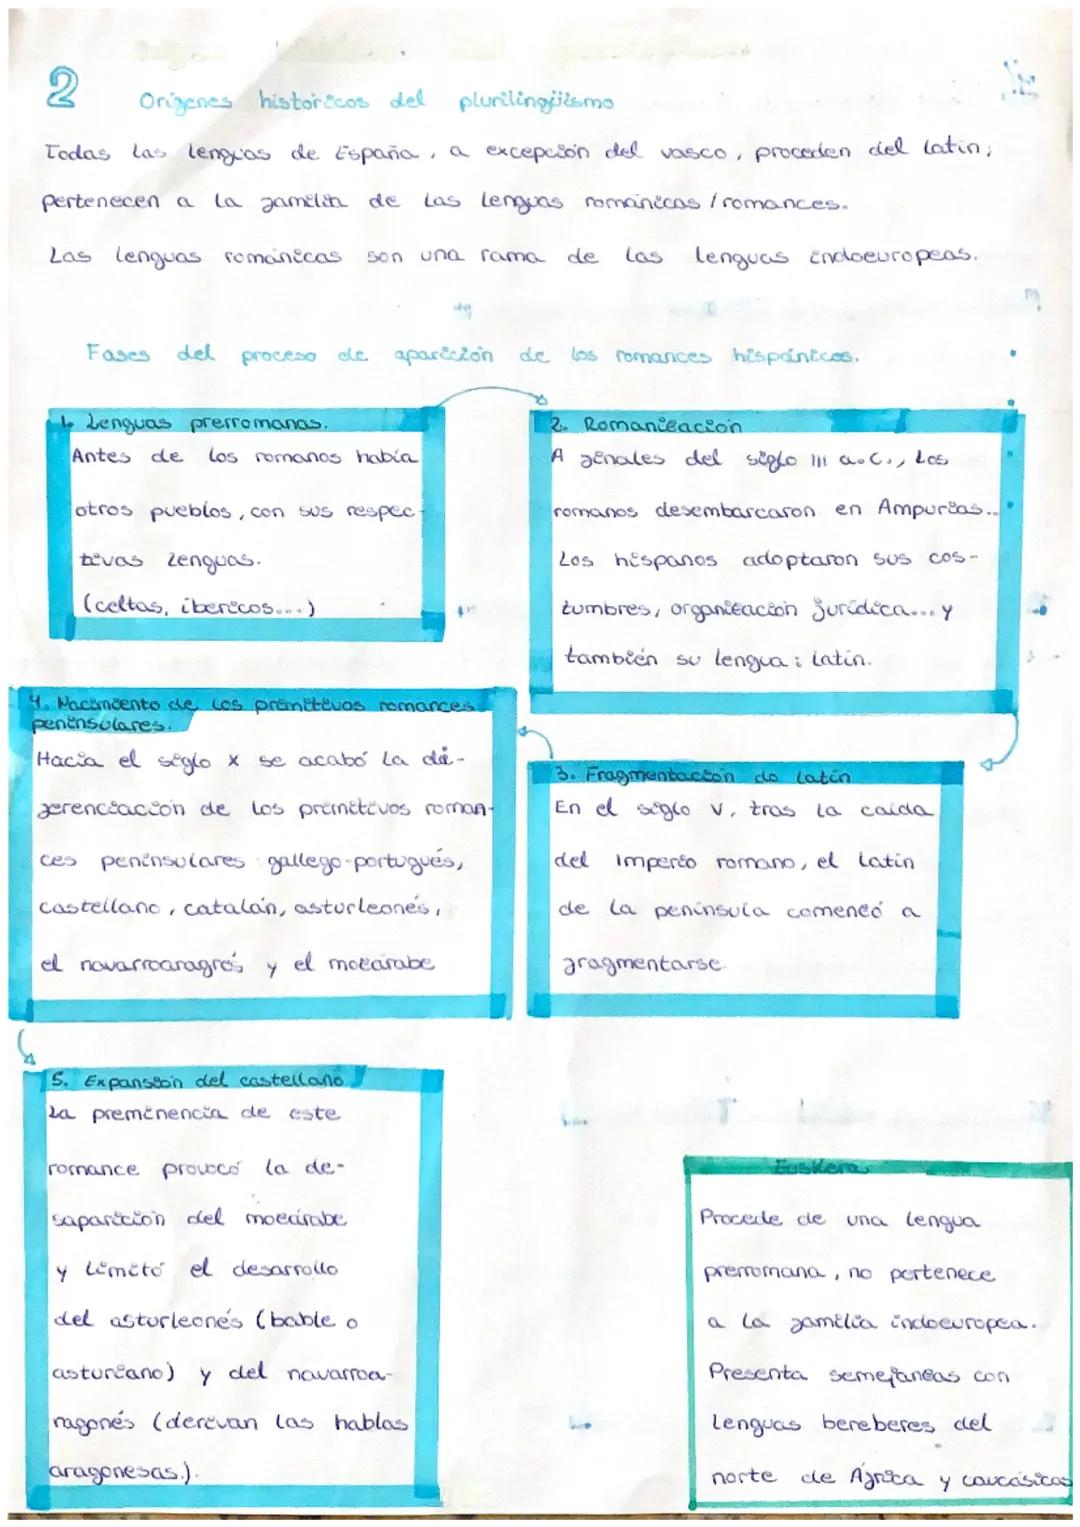 2 Orígenes históricos del plurilingüismo
Todas las lenguas de España, a excepción del vasco, proceden del latín;
pertenecen a la familia de las lenguas románicas / romances.
Las lenguas románicas son una rama de las lenguas indoeuropeas.
Fases del proceso de aparición de los romances hispánicos.
1. Lenguas prerromanas.
Antes de los romanos había
otros pueblos, con sus respec-
tivas lenguas.
(celtas, ibericos...)
2. Romanización
A finales del siglo III a.C., los
romanos desembarcaron en Ampurias...
Los hispanos adoptaron sus cos-
tumbres, organización jurídica... y
también su lengua: latín.
3. Fragmentación do latín
En el siglo V, tras la caída
del Imperio romano, el latín
de la península comenzó a
fragmentarse.
4. Nacimiento de los primitivos romances
peninsulares.
Hacia el siglo X se acabó la di-
ferenciación de los primitivos roman-
ces peninsulares gallego-portugués,
castellano, catalán, asturleonés,
el navarroaragrés y el mozárabe
5. Expansión del castellano
La preminencia de este
romance provocó la de-
saparición del mozárabe
y limitó el desarrollo
del asturleonés (bable o
asturiano) y del navarroa-
ragonés (derivan las hablas
aragonesas.).
Euskera
Procede de una lengua
prerromana, no pertenece
a la familia indoeuropea.
Presenta semejanzas con
lenguas bereberes del
norte de África y caucásicas